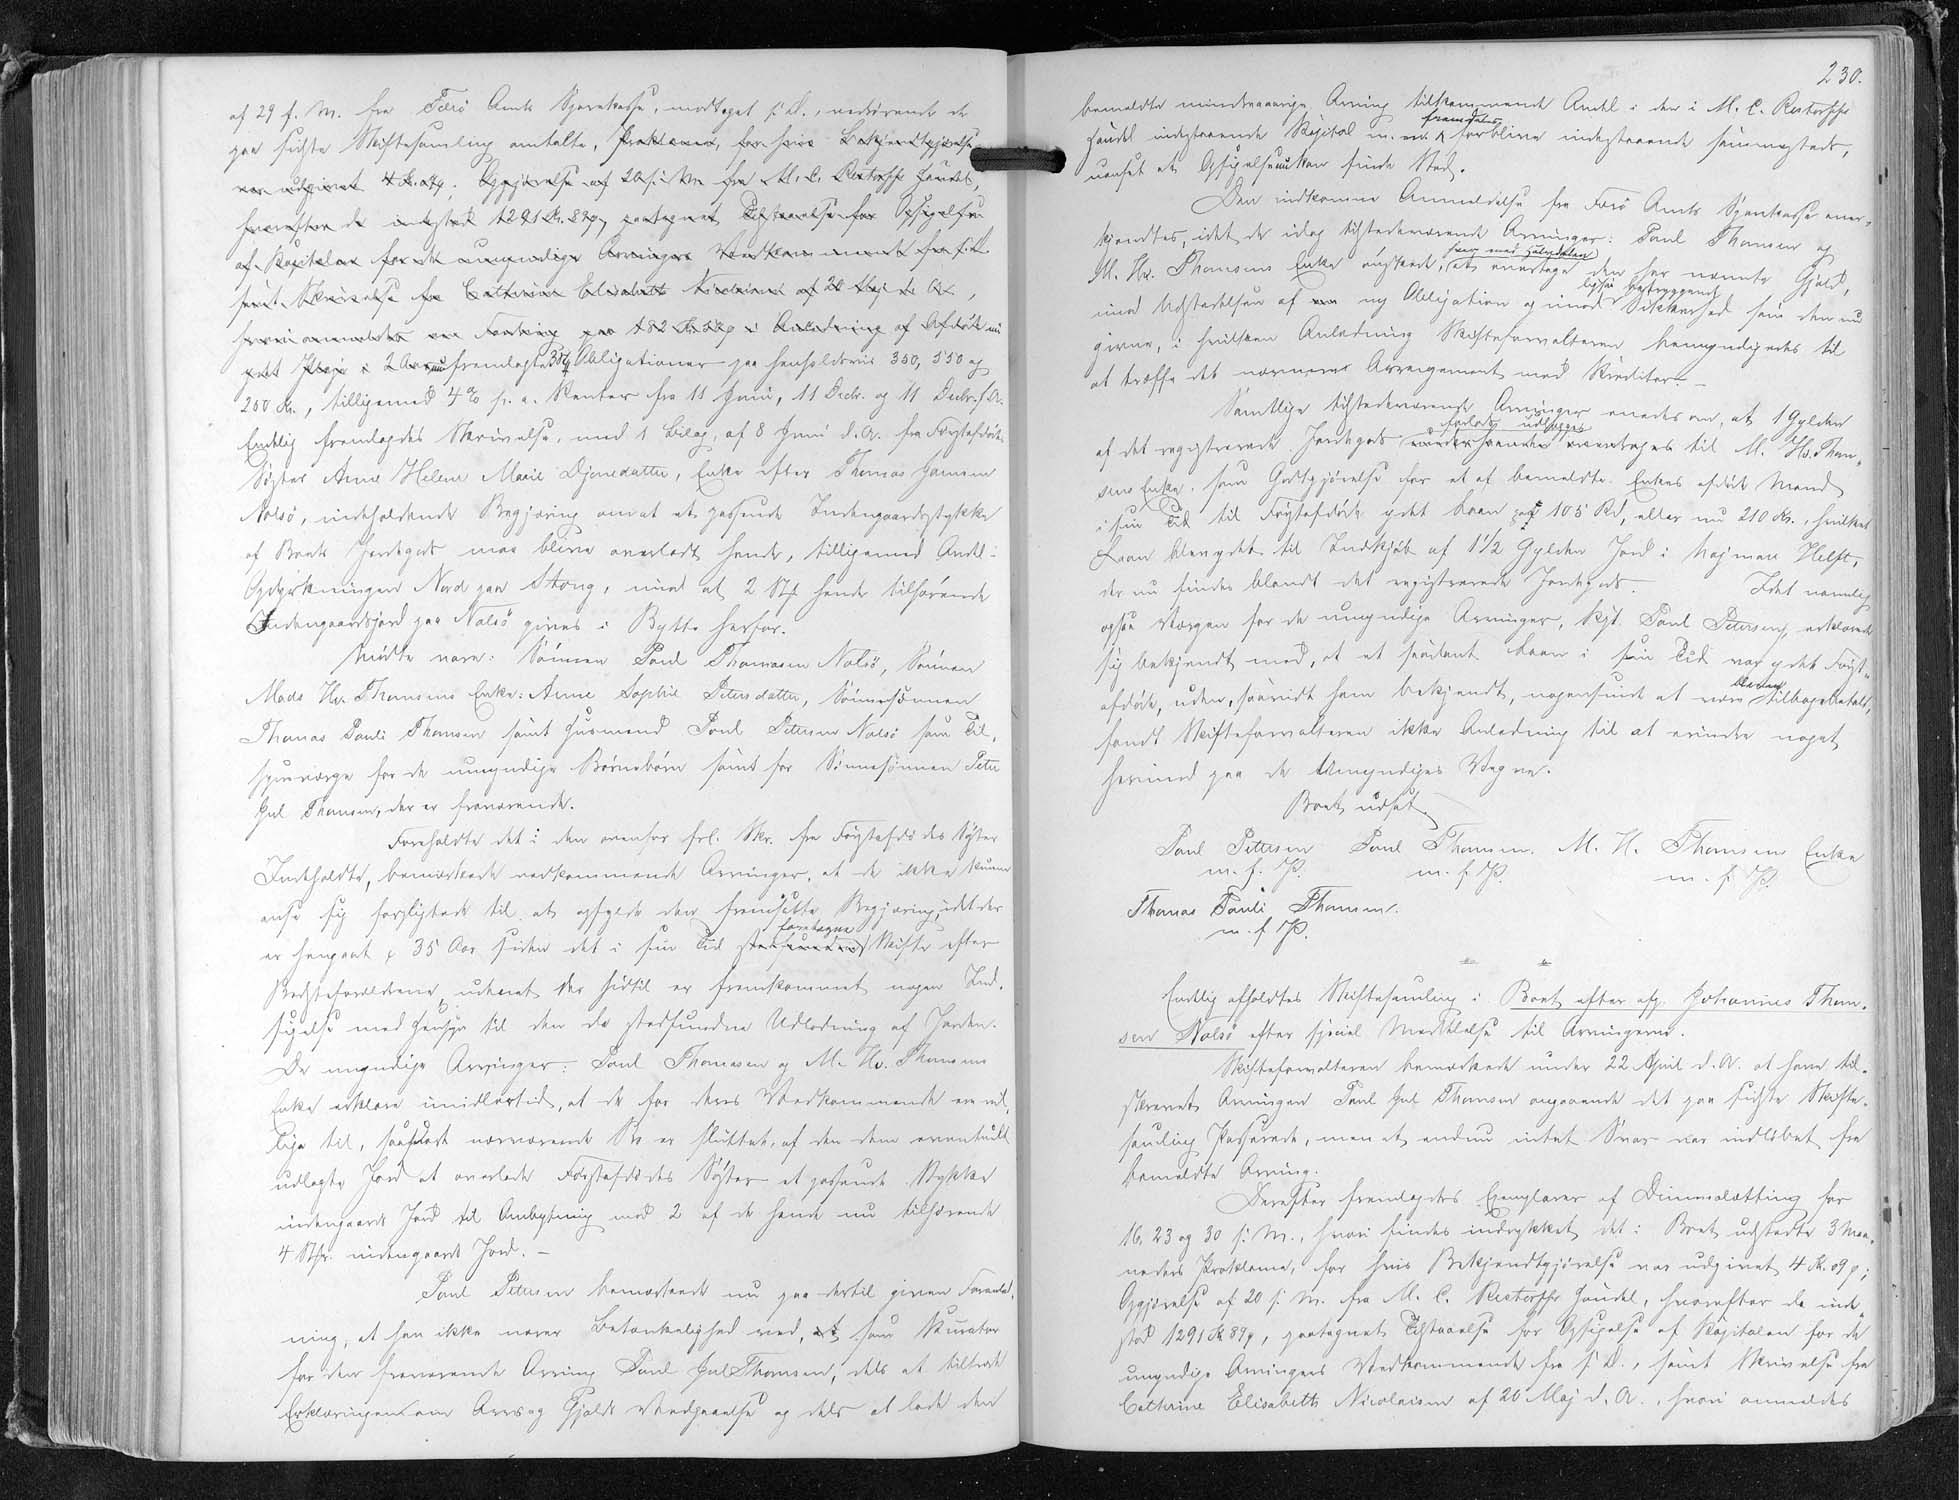 af 29 f. M. fra Færø Amts Sparekasse, modtaget s. D., vedrørende de
paa sidste Skiftesamling omtalte, Proklama, for hvis Bekjendtgjørelse
var udgivet 4 K. 09 ø; Opgjørelse af 20 s. M. fra M. C. Restorffs Handel,
hvorefter de indestod 1291 Kr. 89 ø, paategnet Tilstaaelse for Opsigelse
af Kapitalen for de umyndige Arvingers Vedkommende fra s. D.
samt Skrivelse fra Cathrine Elisabeth Nicolaisen af 20 Maj d. A.,
hvori anmeldes en Fordring paa 182 Kr. i Anledning af Afdøde
ydet Pleje i 2 Aar fremlagte 3 Obligationer paa henholdsvis 350, 550 og
200 Kr., tilligemed 4 % p. a. Renter fra 11 Juni, 11 Decbr. og 11 Decbr. f. A.
Endelig fremlagdes Skrivelse, med 1 Bilag, af 8 Juni d. A. fra Førstafdødes
Søster Anne Helene Marie Djonedatter, Enke efter Thomas Hansen
Nolsø, indeholdende Begjæring om at et passende Indengaardsstykke
af Boets Jordegods maa blive overladt hende, tilligemed Andel i
Opdyrkningen Nord paa Stong, imod at 2 Sk hende tilhørende
Indengaardsjord paa Nolsø gives i Bytte herfor.
Mødte vare: Sønnen Poul Thomasen Nolsø, Sønnen
Mads Hr. Thomsens Enke: Anne Sophie Petersdatter, Sønnesønnen
Thomas Pauli Thomsen samt Husmand Poul Petersen Nolsø som Til-
synsværge for de umyndige Børnebørn samt for Sønnesønnen Peter
Jul Thomsen, der er fraværende.
Foreholdte det i den ovenfor frl. Skr. fra Førstafdødes Søster
Indeholdte, bemærkede vedkommende Arvinger, at de ikke kunne
anse sig forpligtede til at opfylde den fremsatte Begjæring, idet der
er hengaaet c 35 Aar siden det i sin Tid stedfundne foretagne Skifte efter
Bedsteforældrene, uden at der hidtil er fremkommet nogen Ind-
sigelse med Hensyn til den da stedfundne Udlodning af Jorden.
De myndige Arvinger: Poul Thomasen og M. Hr. Thomsens
Enke erklære imidlertid, at de for deres Vedkommende ere vil-
lige til, saasnart nærværende Bo er sluttet, af den dem eventuelt
udlagte Jord at overlade Førstafdødes Søster et passende Stykke
indengaards Jord til Ombytning med 2 af de hende nu tilhørende
4 Skp. indengaards Jord. —
Poul Petersen bemærkede nu paa dertil given Foranled-
ning, at han ikke nærer Betænkelighed ved, at som Kurator
for den fraværende Arving Poul Jul Thomsen, dels at tiltræde
Erklæringen om Arvs og Gjælds Vedgaaelse og dels at lade den
230.
bemeldte mindreaarige Arving tilkommende Andel i den i M. C. Restorffs
Handel indestaaende Kapital m. m. fremdeles forblive indestaaende sammesteds,
uanset at Opsigelse kan finde Sted.
Den indkomne Anmeldelse fra Færø Amts Sparekasse aner-
kjendtes, idet de idag tilstedeværende Arvinger: Poul Thomsen og
M. Hr. Thomsens Enke ønskede, hver med Halvdelen at overtage den her nævnte Gjæld,
imod Udstedelsen af en ny Obligation og imod ligesaa betryggende Sikkerhed som den nu
givne, i hvilken Anledning Skifteforvalteren bemyndigedes til
at træffe det nærmere Arrangement med Kreditor. —
Samtlige tilstedeværende Arvinger enedes om, at 1 Gylden
af det registrerede Jordegods forlods udlægges til M. Hr. Thom-
sens Enke som Godtgjørelse for et af bemeldte Enkes afdøde Mand
i sin Tid til Førstafdøde ydet Laan paa 105 Rd, eller nu 210 Kr., hvilket
Laan blev ydet til Indkjøb af 1 1/2 Gylden Jord i Højmare Helft,
der nu findes blandt det registrerede Jordegods. Idet nemlig
ogsaa Værgen for de umyndige Arvinger, Kgl. Poul Petersen, erklærede
sig bekjendt med, at et saadant Laan i sin Tid var ydet Først-
afdøde, uden, saavidt ham bekjendt, nogensinde at være bleven tilbagebetalt,
fandt Skifteforvalteren ikke Anledning til at erindre noget
herimod paa de Umyndiges Vegne.
Boet udsat.
Poul Petersen Poul Thomsen. M. H. Thomsens Enke
m. f. P. m. f. P. m. f. P.
Thomas Pauli Thomsen.
m. f. P.
Endelig afholdtes Skiftesamling i Boet efter afg. Johannes Thom-
sen Nolsø efter special Meddelelse til Arvingerne.
Skifteforvalteren bemærkede under 22 April d. A. at have til-
skrevet Arvingen Poul Jul Thomsen angaaende det paa sidste Skifte-
samling Passerede, men at endnu intet Svar var indløbet fra
bemeldte Arving.
Derefter fremlagdes Exemplarer af Dimmalætting for
16, 23 og 30 s. M., hvori findes indrykket det i Boet udstedte 3 Maa-
neders Proklama, for hvis Bekjendtgjørelse var udgivet 4 K. 09 ø;
Opgjørelse af 20 s. M. fra M. C. Restorffs Handel, hvorefter de inde-
stod 1291 K 89 ø, paategnet Tilstaaelse for Opsigelse af Kapitalen for de
umyndige Arvingers Vedkommende fra s. D., samt Skrivelse fra
Cathrine Elisabeth Nicolaisen af 20 Maj d. A., hvori anmeldes